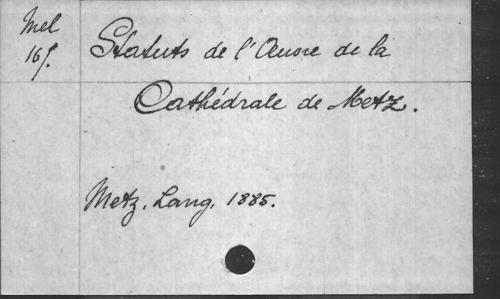 Mel
16f.
Statuts de l'Œuvre de la
Cathédrale de Metz.
Metz, Lang, 1885.